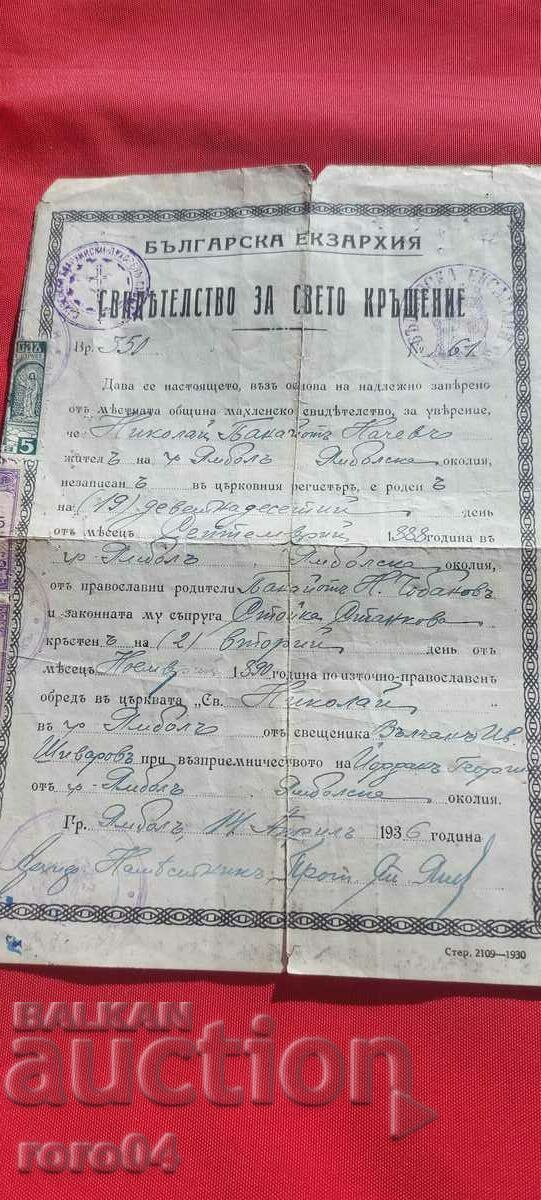 БЪЛГАРСКА ЕКЗАРХИЯ
СВИДѢТЕЛСТВО ЗА СВЕТО КРЪЩЕНИЕ
Вр. 350 № 61
Дава се настоящето, възъ основа на надлежно завѣрено
отъ мѣстната община махленско свидѣтелство, за уверение,
че Николай Панайотъ Начевъ
жител ъ на гр Ямболъ Ямболска околия,
незаписан ъ въ църковния регистъръ, е родел ъ
на (19) деветнадесетий день
отъ месець Септемврий 1888 година въ
гр. Ямболъ Ямболска околия,
отъ православни родители Панайотъ Н. Чобановъ
и законната му съпруга Стойка Станкова
кръстен ъ на (2) вторий день отъ
месець Ноемврий 1890 година по източно-православен
обредъ въ църквата „Св. Николай"
въ гр Ямболъ отъ свещеника Вълчанъ Ив.
Шиваровъ при възприемничеството на Йорданъ Георги
отъ гр. Ямболъ Ямболска околия.
Гр. Ямболъ, Априлъ 1936 година
Архиер. Намѣстникъ: Прот.
Стер. 2109—1930
5
BALKAN
auction
roro04